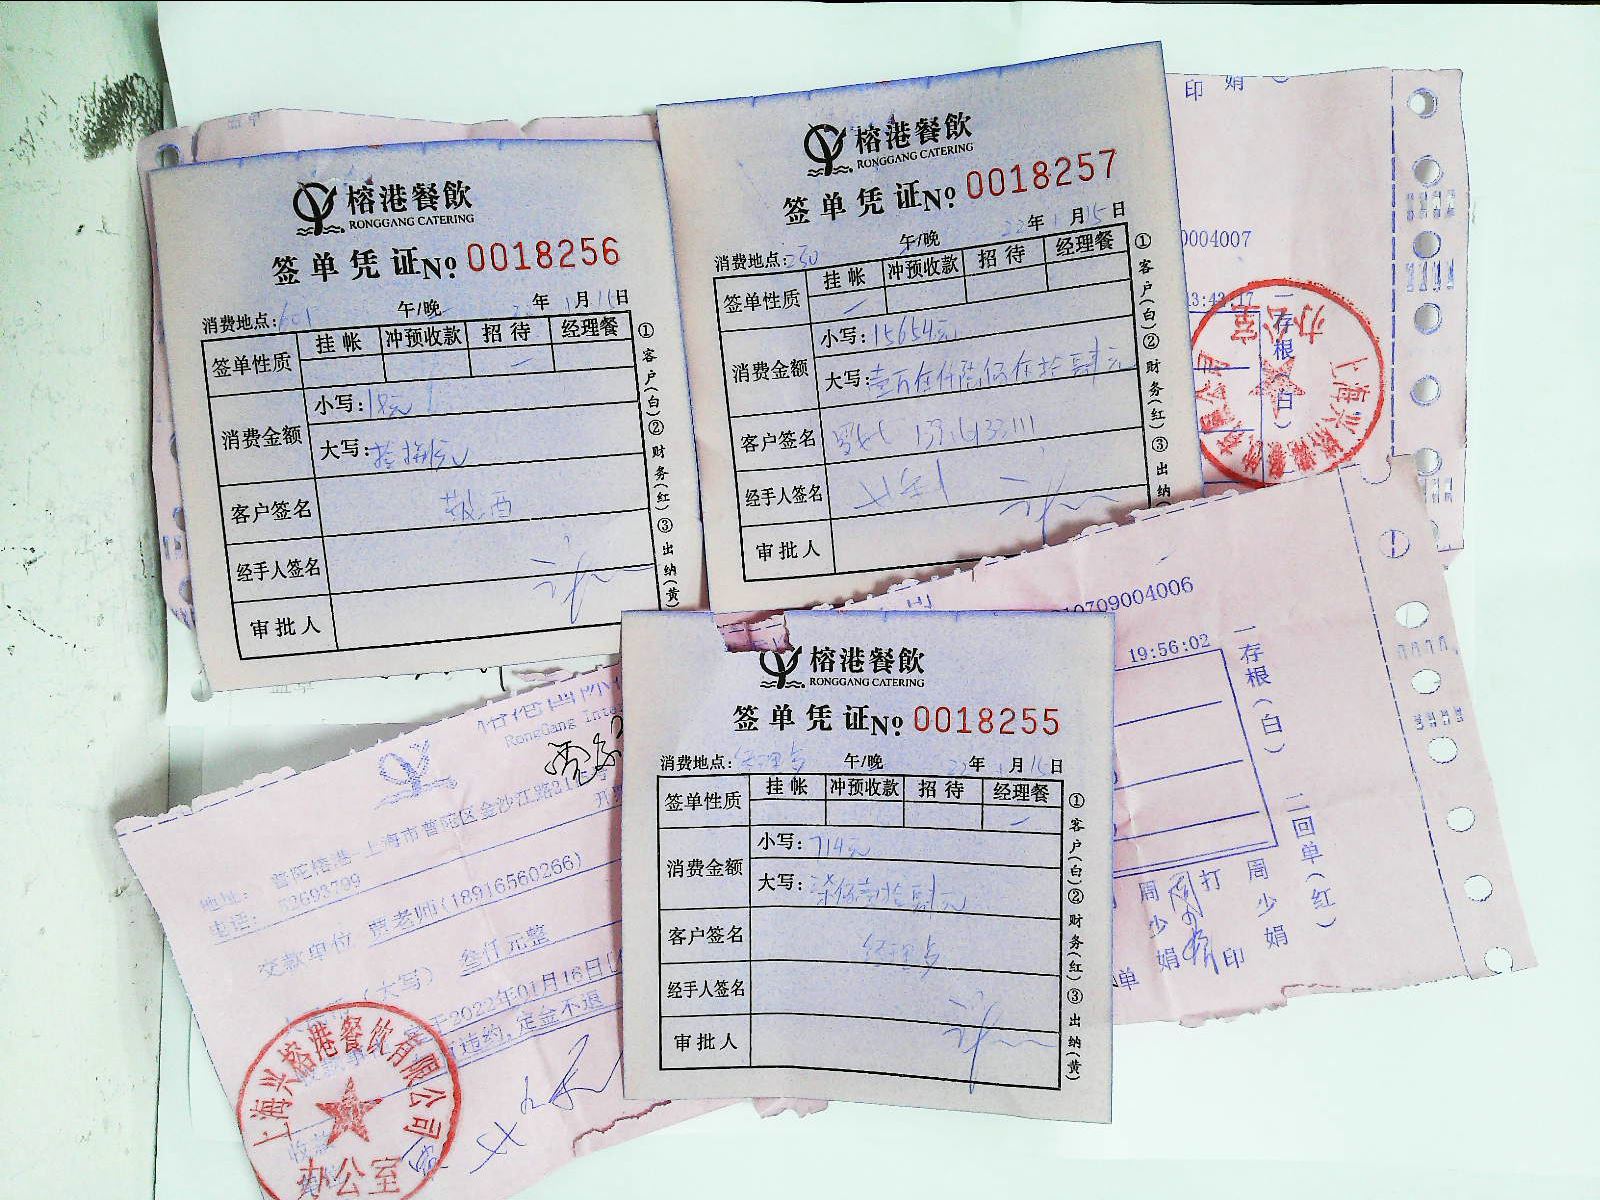 榕港餐飲
RONGGANG CATERING
签单凭证№ 0018256
消费地点: 601 午/晚 22年1月15日
签单性质 挂帐 冲预收款 招待 经理餐
消费金额 小写: 18元
大写: 拾捌元
客户签名
经手人签名
审批人
①客户(白)②财务(红)③出纳(黄)
榕港餐飲
RONGGANG CATERING
签单凭证№ 0018257
消费地点: 250 午/晚 22年1月15日
签单性质 挂帐 冲预收款 招待 经理餐
消费金额 小写: 15654元
大写: 壹万伍仟陆佰伍拾肆元
客户签名
经手人签名
审批人
①客户(白)②财务(红)③出纳
印 娟
0004007
13:42:17
一存根(白)
上海兴榕港餐饮有限公司
办公室
榕港餐飲
RONGGANG CATERING
签单凭证№ 0018255
消费地点: 经理点 午/晚 22年1月15日
签单性质 挂帐 冲预收款 招待 经理餐
消费金额 小写: 714元
大写: 柒佰壹拾肆元
客户签名 经理点
经手人签名
审批人
①客户(白)②财务(红)③出纳(黄)
0709004006
19:56:02
一存根(白)
二回单(红)
周少娟
打印
周少娟
单
RongGang Inte
地址: 普陀榕港-上海市普陀区金沙江路21
电话: 52693799
交款单位 贾老师(18916560266)
(大写) 叁仟元整
于2022年01月16日
违约,定金不退
收款
上海兴榕港餐饮有限公司
办公室